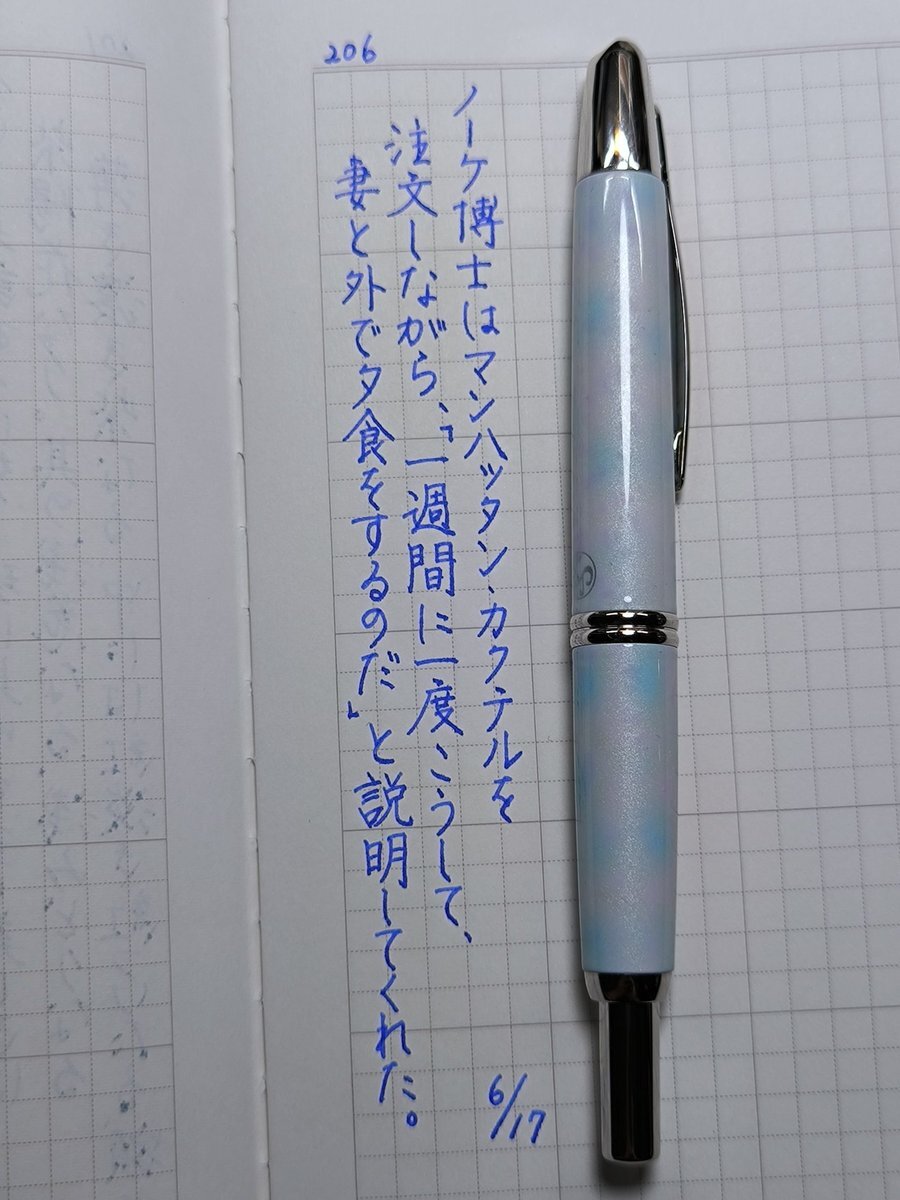 206
ノーケ博士はマンハッタン・カクテルを
注文しながら、「一週間に一度こうして、
妻と外で夕食をするのだ」と説明してくれた。
6/17